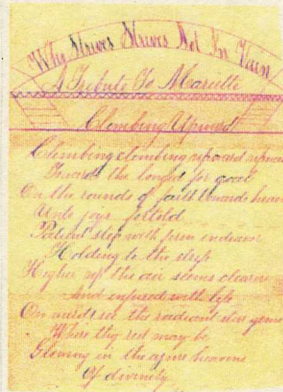 Why Strives Strives Not In Vain
A Tribute To Mariette
Climbing Upward
Climbing climbing upward upward
Towards the longed for goal
On the rounds of faith towards heaven
Unto joys foretold
Patient step with firm endeavor
Holding to the
Higher up the air seems clearer
And infused with life
Onward see the radiant star
Where thy rest may be
Glowing in the azure heavens
Of divinity